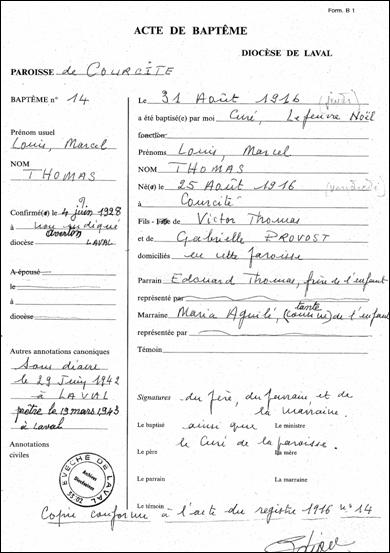 Form. B 1
ACTE DE BAPTÊME
DIOCÈSE DE LAVAL
PAROISSE de COURCITE
BAPTÊME n° 14
Prénom usuel
Louis, Marcel
NOM
THOMAS
Confirmé(e) le 4 juin 1928
à non indiqué
averton
diocèse LAVAL
A épousé
le
à
diocèse
Autres annotations canoniques
Sous diacre
le 29 Juin 1942
à LAVAL
prêtre le 19 mars 1943
à Laval
Annotations
civiles
EVECHE DE LAVAL
Archives
Diocésaines
Le 31 Août 1916 (jeudi)
a été baptisé(e) par moi Curé, Lefeuvre Noël
fonction
Prénoms Louis, Marcel
NOM THOMAS
Né(e) le 25 Août 1916 (vendredi)
à Courcité
Fils - Fille de Victor Thomas
et de Gabrielle PROVOST
domiciliés en cette paroisse
Parrain Edouard Thomas, frère de l'enfant
représenté par
tante
Marraine Maria Aguilé, (cousine) de l'enfant
représentée par
Témoin
Signatures du père, du parrain et de
la marraine.
Le baptisé ainsi que Le ministre
le Curé de la paroisse.
Le père La mère
Le parrain La marraine
Le témoin
Copie conforme à l'acte du registre 1916 n° 14